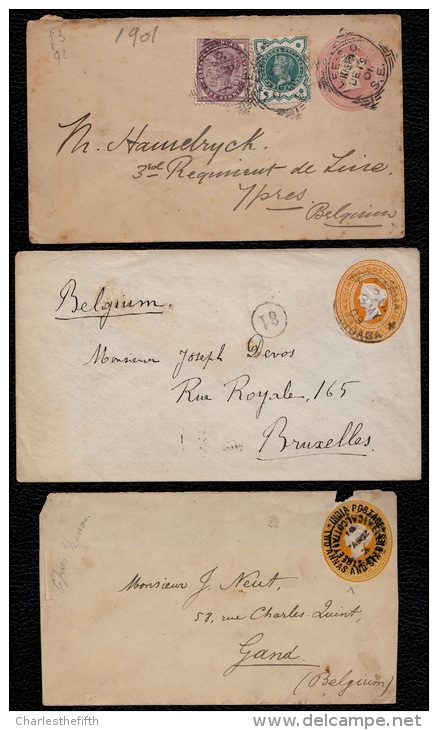 1901
LEE S.O.
DE 19
01
S.E.
M. Hamelryck.
3rd Regiment de Line.
Ypres.
Belgium
Belgium.
81
Monsieur Joseph Devos
Rue Royale, 165
Bruxelles.
INDIA POSTAGE
Monsieur J. Neut,
52, rue Charles Quint,
Gand.
(Belgium)
Charlesthefifth